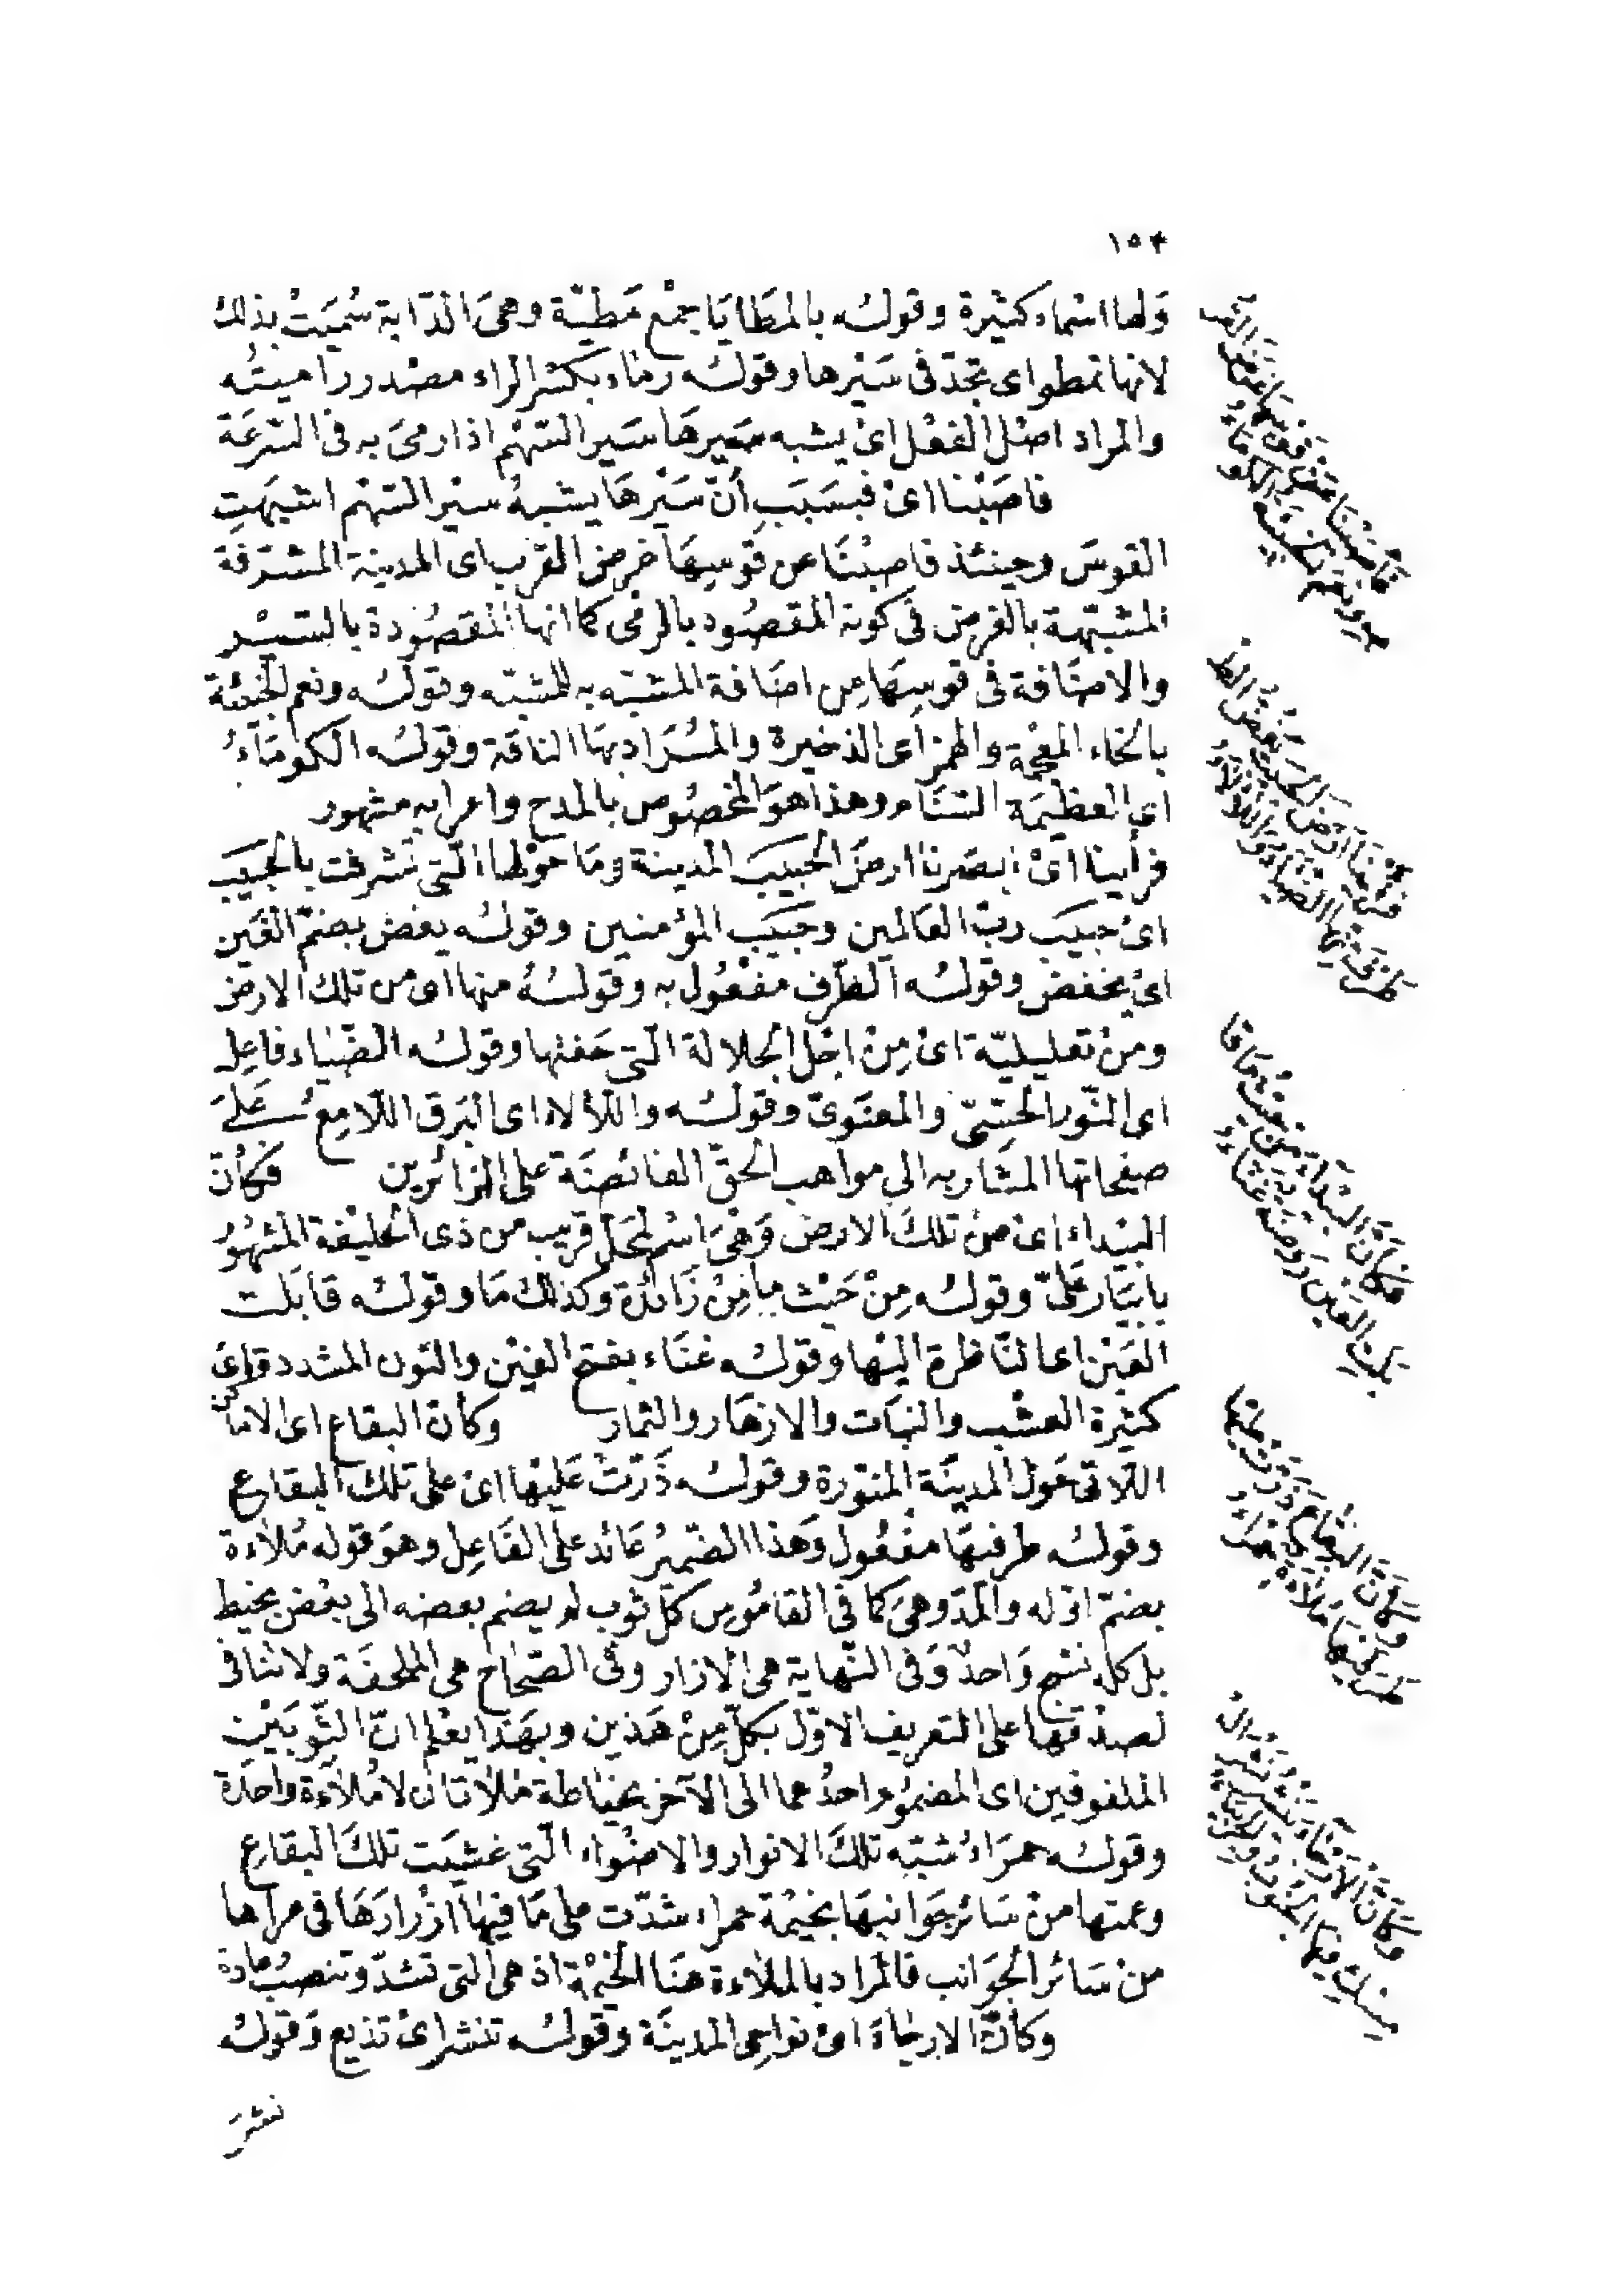 ١٥٣
وَلها اسْماء كثيرة وقولُه بالمطَايَا جمْع مَطيّة وهىَ الدّابة سُميَتْ بذلك
لانها تمطو اى تجدّ فى سَيْرها وقولُه رماء بكسْر الراء مصْدر راميتُه
والمراد اصْل الفعْل اىْ يشبه سَيرهَا سَير السّهْم اذا رمىَ به فى السّرعَة
فاصَبْنا اىْ فبسَبَبِ أنّ سَيْرهَا يشبهُ سيْر السّهْم اشبَهَتِ
القوسَ وحينئذ فاصبْنَا عن قوسِهَا غرض القرب اى المدينة المشرّفة
المشبّهة بالغرض فى كونه المقصُود بالرمى كما انها المقصُودة بالسّيْر
والاضَافة فى قوسِهَا مِن اضَافة المشبّه به للمشبّه وقولُه ونعم الخبيئة
بالخاء المعجمة والهمز اى الذخيرة والمُرَاد بهَا الناقة وقولُه الكومَآءُ
اى العظيمَة السّنَام وهذا هوَ المخصُوص بالمدح واعرابه مشهور
فرأينا اىْ ابصَرنا ارضَ الحبيبَ المدينة ومَا حوْلها التى تشرفت بالحبيبَ
اىْ حبيَب ربّ العَالمين وحَبيَب المؤمنين وقولُه يغض بضمّ الغَين
اىْ يخفض وقولُه الطرْف مفعُول به وقولُهُ منها اى من تلك الارض
ومنْ تعليليّة اىْ مِنْ اجْل الجلالة التى حَفتها وقولُه الضّيَاء فاعِل
اى النّور الحسّىّ والمعنَوىّ وقولُه واللألاء اى البَرق اللّامِعُ عَلىَ
صفحاتها المشَار به الى مواهب الحقّ الفائضَة على الزائرين فكَأنّ
البيْداء اىْ منْ تلكَ الارض وَهىَ اسْم لمَحَل قريب من ذى الحليْفة المشهُوُ
بابيَار علىّ وقولُه مِنْ حَيْث ما مِنْ زَائدَة وكذلك مَا وقولُه قابَلت
العَيْن اى النَّاظرة اليْهَا وقولُه غنّاء بفتح الغيْن والنّون المشددة اىْ
كثيرة العشْب والنبَات والازهَار والثمار وكأنّ البقاع اى الاماكن
اللّاتى حَول المدينَة المنوّرة وقولُه ذَرّتْ عَليْها اىْ على تلك البقاع
وقولُه طرفيْهَا مفْعُول وَهذا الضّميرُ عَائد على الفَاعِل وهوَ قوله مُلَاءة
بضمّ اوّله والمدّ وهىَ كما فى القامُوس كلّ ثوب لم يضم بعضه الى بعْض بخيط
بل كله نسْج وَاحدٌ وَفى النّهاية هى الازار وفى الصّحَاح هى الملحفَة ولا تنافى
لصدْقهَا على التعريف الاوّل بكلّ مِنْ هَذين وبهَذا يعْلم انّ الثّوبَيْن
الملفوفين اى المضمُوم احدُهما الى الآخر بخيَاطة مُلَاءتان لا مُلَاءة واحدَة
وقولُه حمرَاءُ شبّه تلكَ الانوار والاضْواء التى غشيَت تلكَ البقاع
وعمتها منْ سَائر جَوانبهَا بخيْمة حمراء شدّت على مَا فيْهَا ازْرارَهَا فى مرآها
منْ سَائر الجَوانب فالمراد بالملاءة هنَا الخيْمة اذ هى التى تشدّ وتنصبُ عادة
وكأنّ الارجَاءَ اىْ نواحِى المدينَة وقولُه تنشر اىْ تذيع وَقولُه
نشرَ
فَأصَبْنَا عَنْ قَوْسِهَا غَرَضَ القُرْ
بِ وَنِعْمَ الخَبِيئَةُ الكَوْمَاءُ
فَرَأَيْنَا أَرْضَ الحَبِيبِ يَغُضُّ الطّ
طَرْفَ مِنْهَا الضِّيَاءُ وَاللَّأْلَاءُ
فَكَأَنَّ البَيْدَاءَ مِنْ حَيْثُ مَا قَا
بَلَتِ العَيْنَ رَوْضَةٌ غَنَّاءُ
وَكَأَنَّ البِقَاعَ ذَرَّتْ عَلَيْهَا
طَرَفَيْهَا مُلَاءَةٌ حَمْرَاءُ
وَكَأَنَّ الأَرْجَاءَ تَنْشُرُ نَشْرَ الْ
مِسْكِ فِيهَا الجَنُوبُ وَالجِرْبِيَاءُ